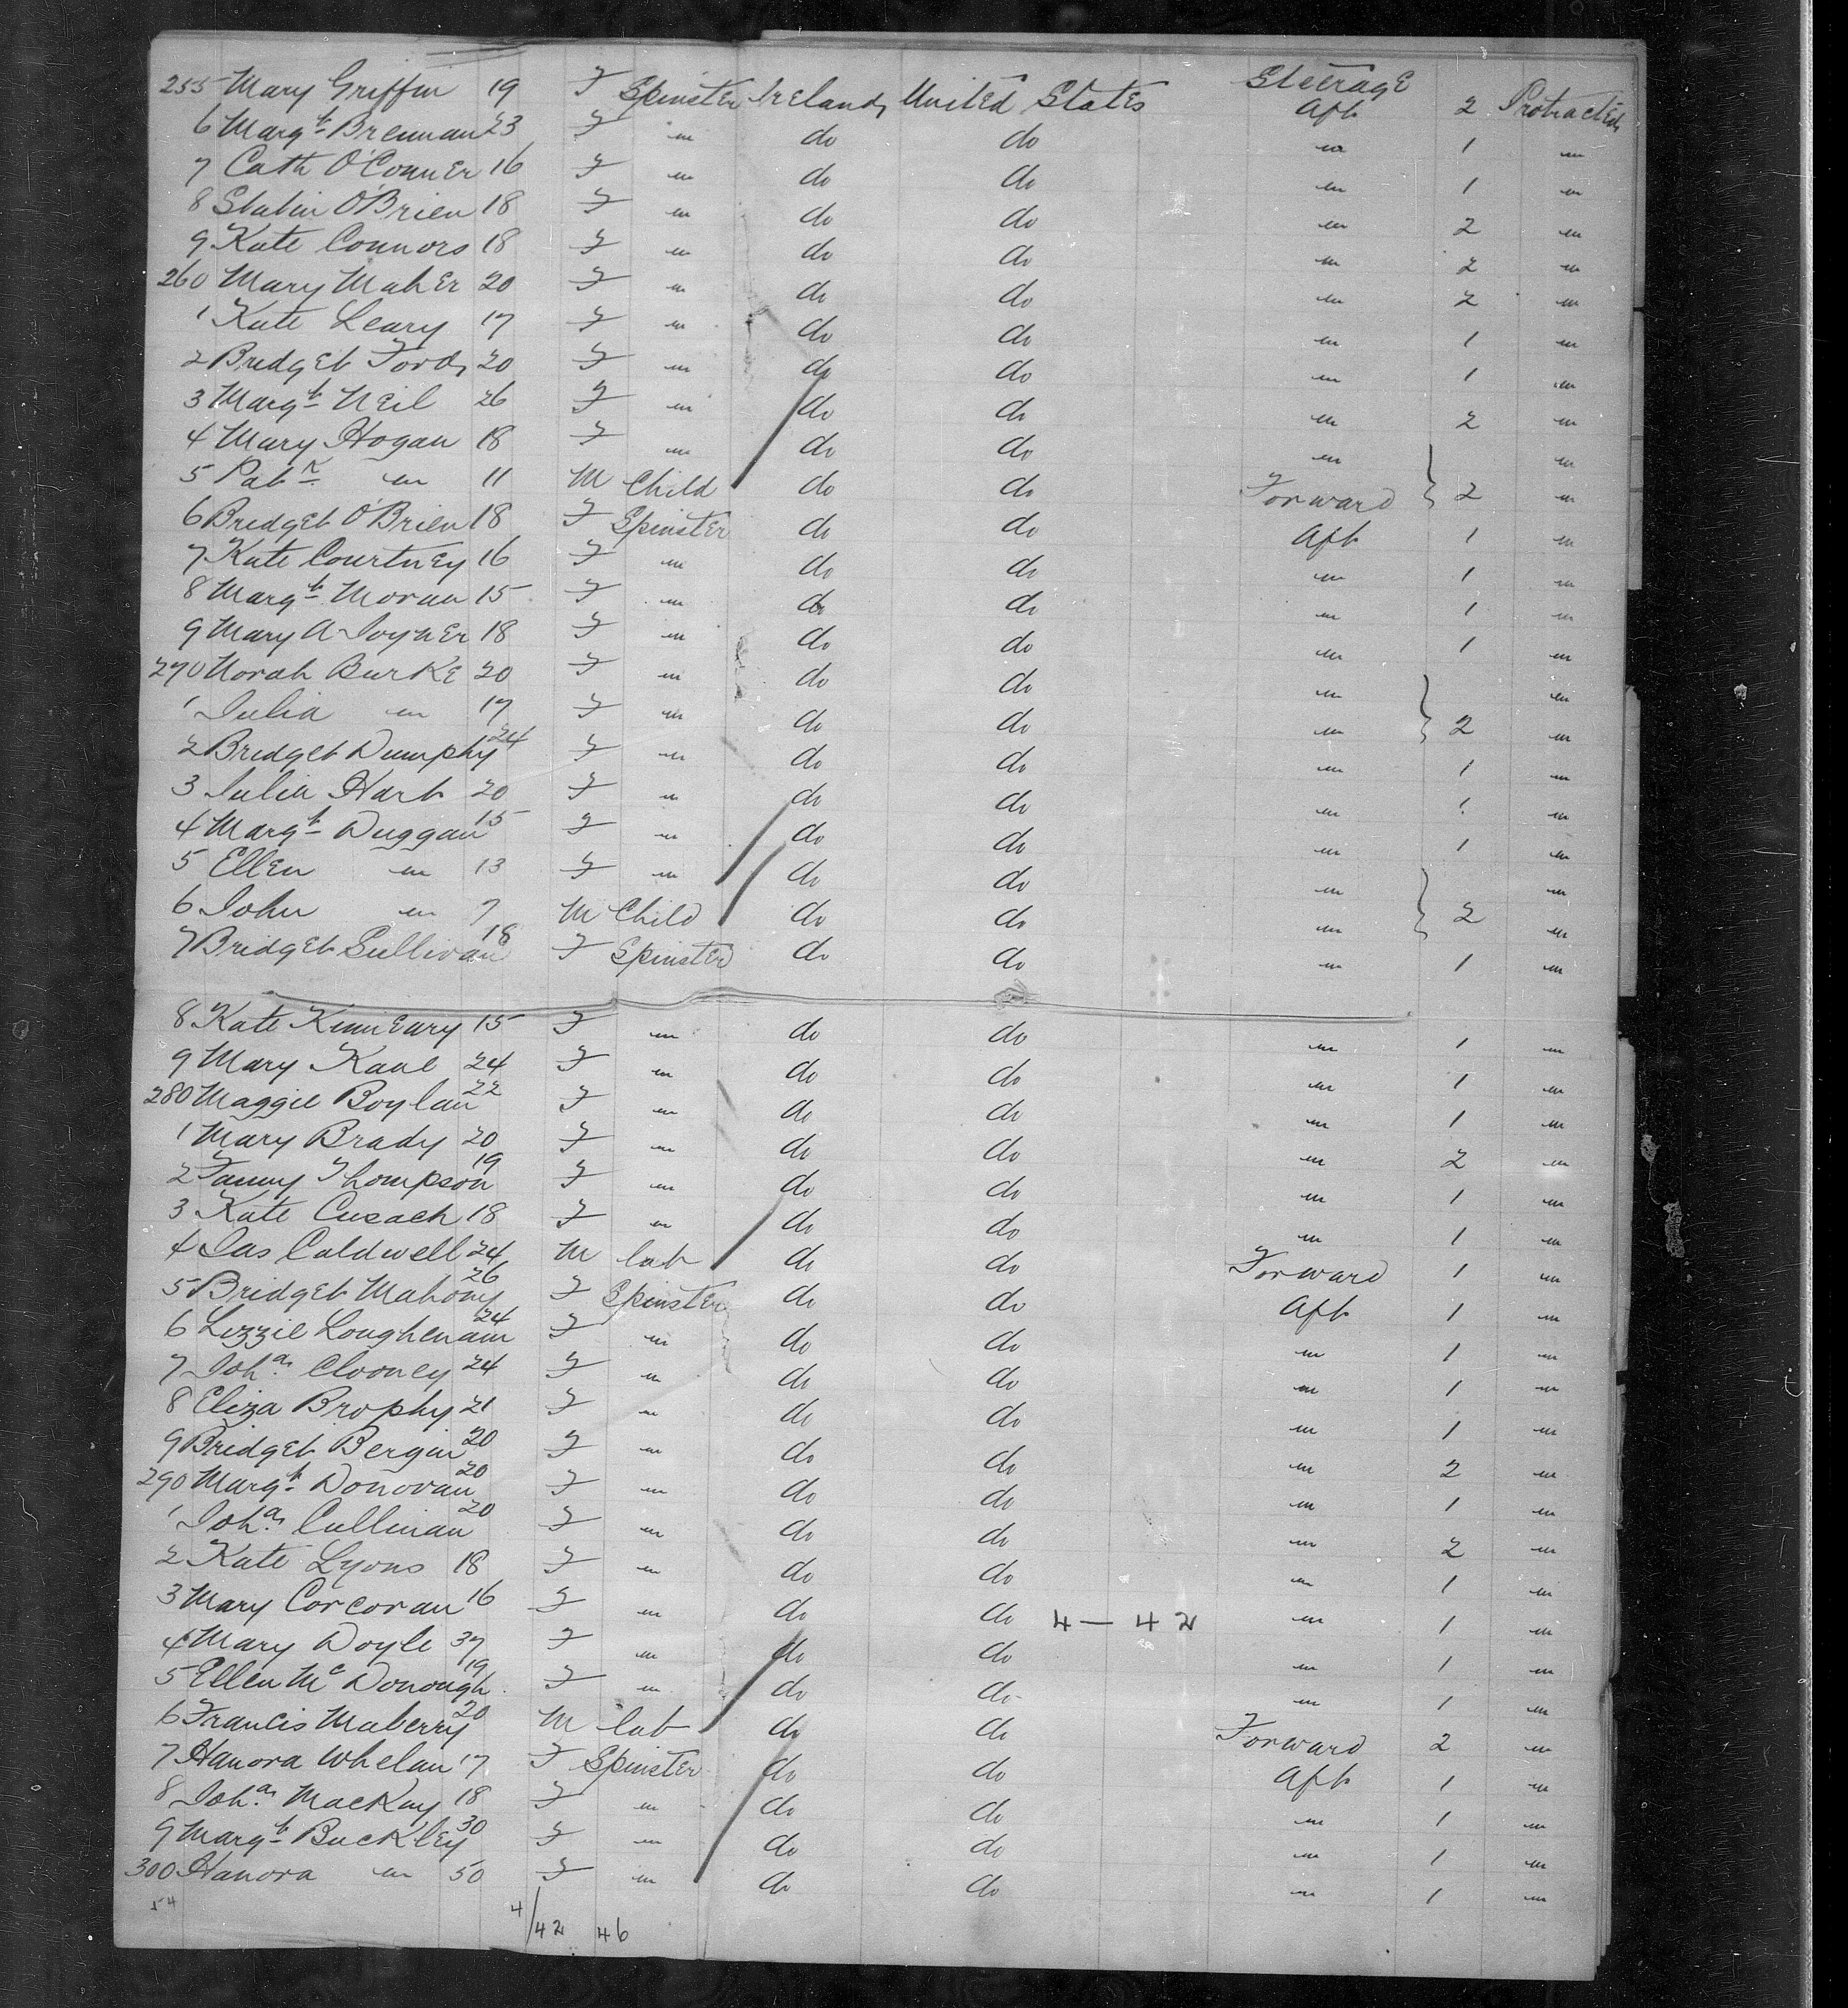 Steerage
255 Mary Griffin 19 F Spinster Ireland United States Aft 2 Protracted
6 Margt Brennan 23 F " do do " 1 "
7 Cath O'Conner 16 F " do do " 1 "
8 Statia O'Brien 18 F " do do " 2 "
9 Kate Connors 18 F " do do " 2 "
260 Mary Maher 20 F " do do " 2 "
1 Kate Leary 17 F " do do " 1 "
2 Bridget Ford 20 F " do do " 1 "
3 Margt Neil 26 F " do do " 2 "
4 Mary Hogan 18 F " do do " "
5 Patk " 11 M Child do do Forward 2 "
6 Bridget O'Brien 18 F Spinster do do Aft 1 "
7 Kate Courtney 16 F " do do " 1 "
8 Margt Moran 15 F " do do " 1 "
9 Mary A Joyner 18 F " do do " 1 "
270 Norah Burke 20 F " do do " "
1 Julia " 17 F " do do " 2 "
2 Bridget Dumphy 24 F " do do " 1 "
3 Julia Hart 20 F " do do " 1 "
4 Margt Duggan 15 F " do do " 1 "
5 Ellen " 13 F " do do " "
6 John " 7 M Child do do " 2 "
7 Bridget Sullivan 18 F Spinster do do " 1 "
8 Kate Kinneary 15 F " do do " 1 "
9 Mary Kane 24 F " do do " 1 "
280 Maggie Boylan 22 F " do do " 1 "
1 Mary Brady 20 F " do do " 2 "
2 Fanny Thompson 19 F " do do " 1 "
3 Kate Cusach 18 F " do do " 1 "
4 Jas Caldwell 24 M lab do do Forward 1 "
5 Bridget Mahony 26 F Spinster do do Aft 1 "
6 Lizzie Loughenann 24 F " do do " 1 "
7 Joha Clooney 24 F " do do " 1 "
8 Eliza Brophy 21 F " do do " 1 "
9 Bridget Bergin 20 F " do do " 2 "
290 Margt Donovan 20 F " do do " 1 "
1 Joha Cullinan 20 F " do do " 2 "
2 Kate Lyons 18 F " do do " 1 "
3 Mary Corcoran 16 F " do do 4 — 42 " 1 "
4 Mary Doyle 37 F " do do " 1 "
5 Ellen Mc Donough 19 F " do do " 1 "
6 Francis Maberry 20 M lab do do Forward 2 "
7 Hanora Whelan 17 F Spinster do do Aft 1 "
8 Joha MacKay 18 F " do do " 1 "
9 Margt Buckley 30 F " do do " 1 "
300 Hanora " 50 F " do do " 1 "
4/42 46